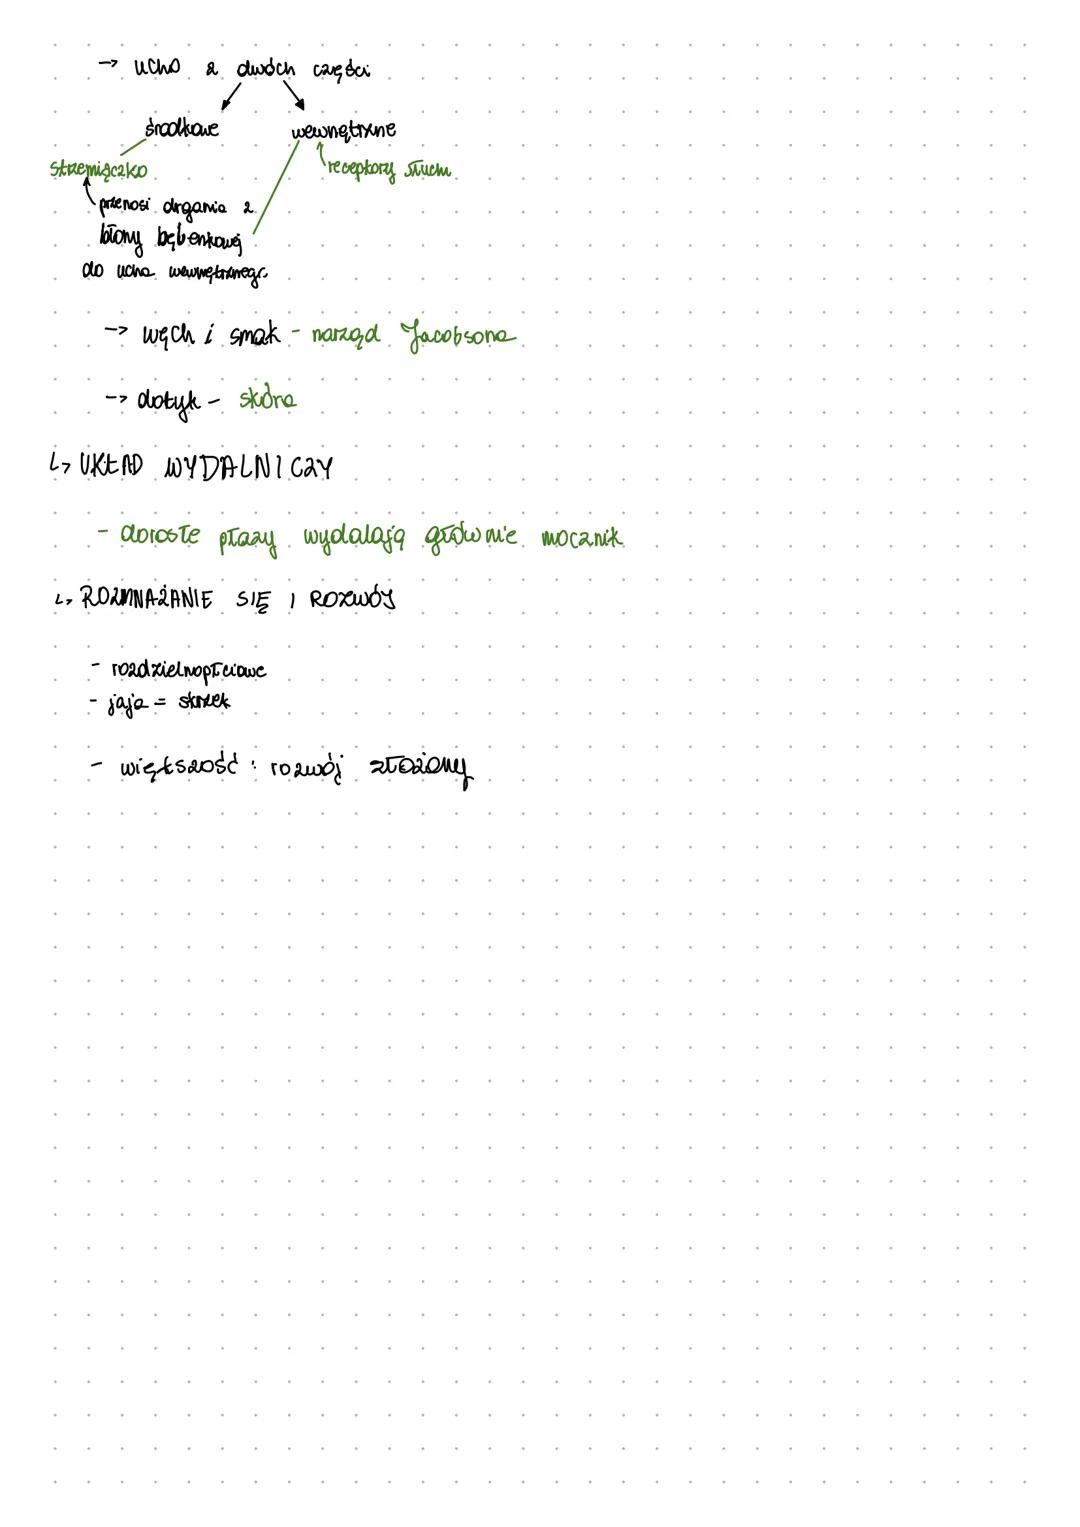 → ucho z dwóch części
środkowe wewnętrzne
strzemiączko receptory słuchu
przenosi drgania z
błony bębenkowej
do ucha wewnętrznego
→ węch i smak - narząd Jacobsona
→ dotyk - skóra
↳ UKŁAD WYDALNICZY
- dorosłe płazy wydalają głównie mocznik
↳ ROZMNAŻANIE SIĘ I ROZWÓJ
- rozdzielnopłciowe
- jaja = skrzek
- większość : rozwój złożony